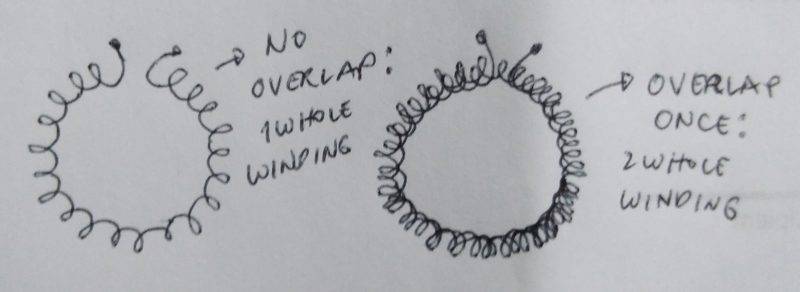 → NO
OVERLAP:
1 WHOLE
WINDING
→ OVERLAP
ONCE:
2 WHOLE
WINDING